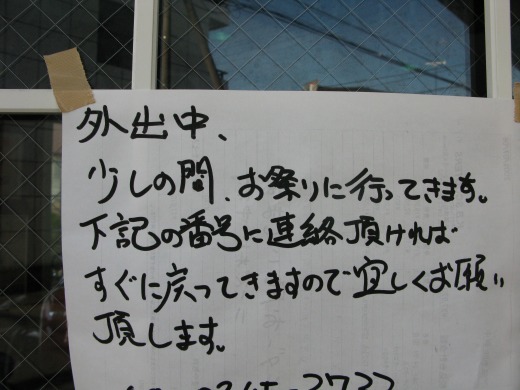 外出中、
少しの間、お祭りに行ってきます。
下記の番号に連絡頂ければ
すぐに戻ってきますので宜しくお願い
頂します。